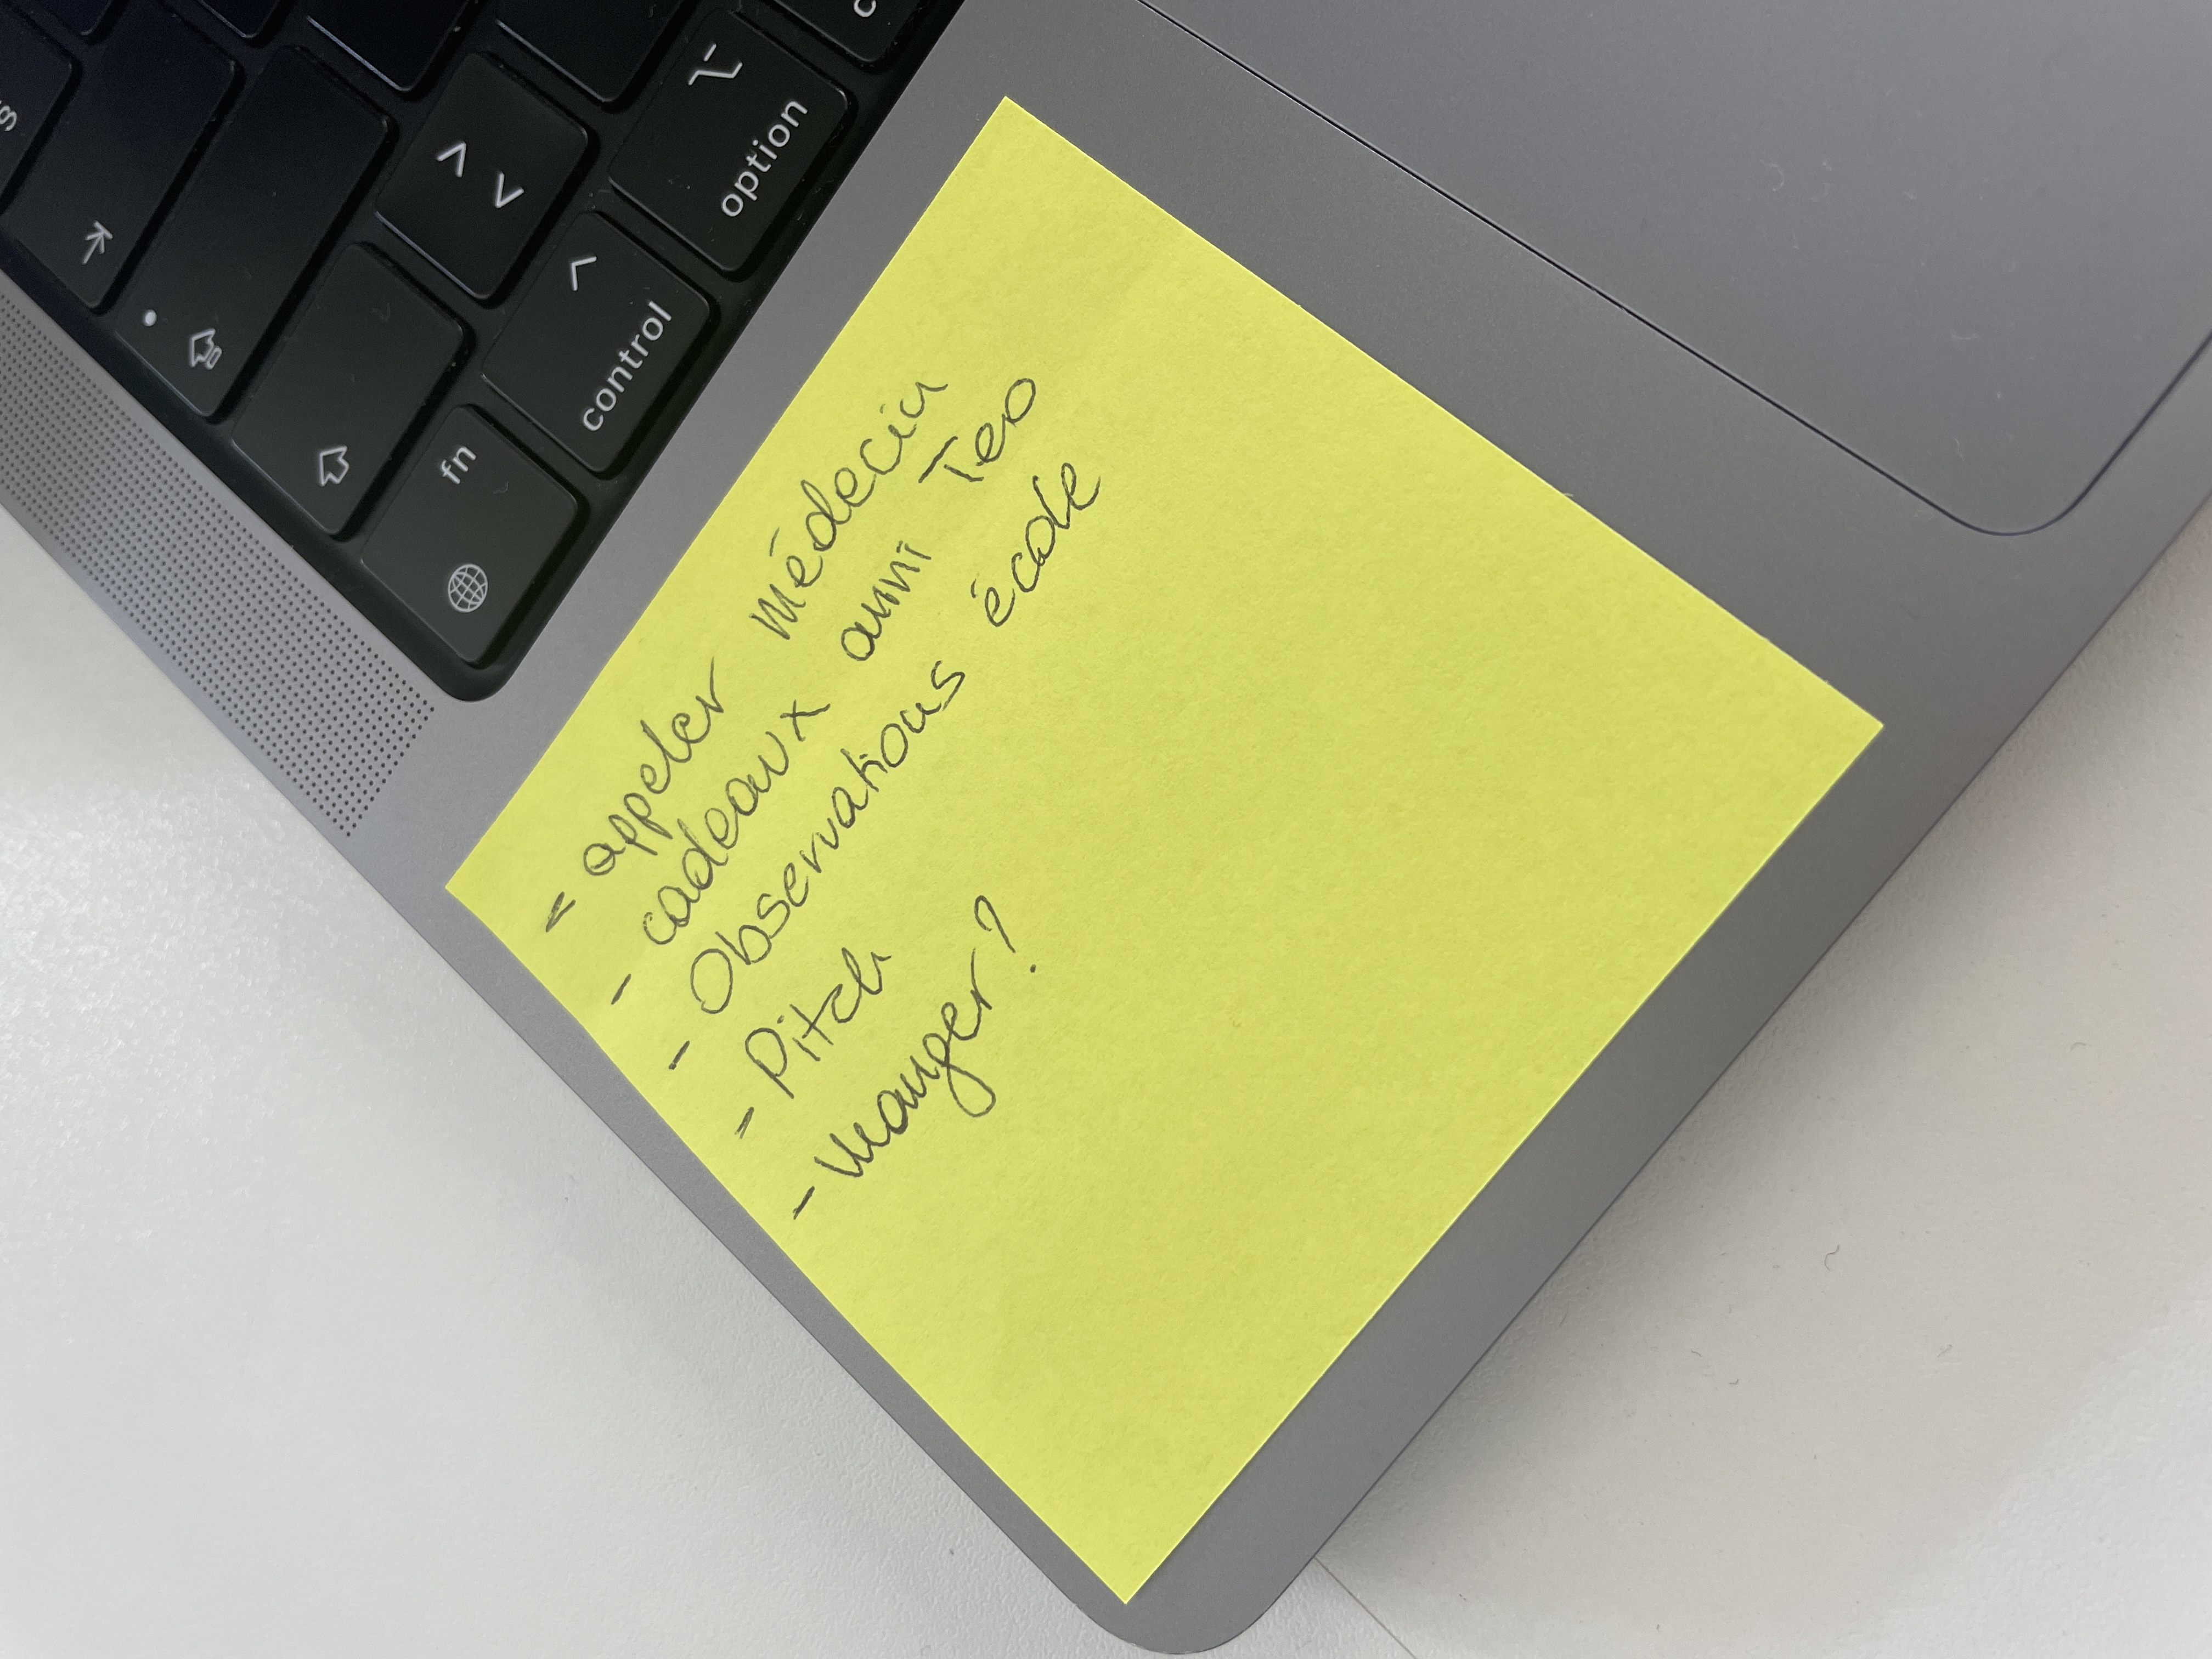 - appeler médecin
- cadeaux anni Teo
- Observations école
- Pitch
- manger?
s
fn
>
<
^
control
option